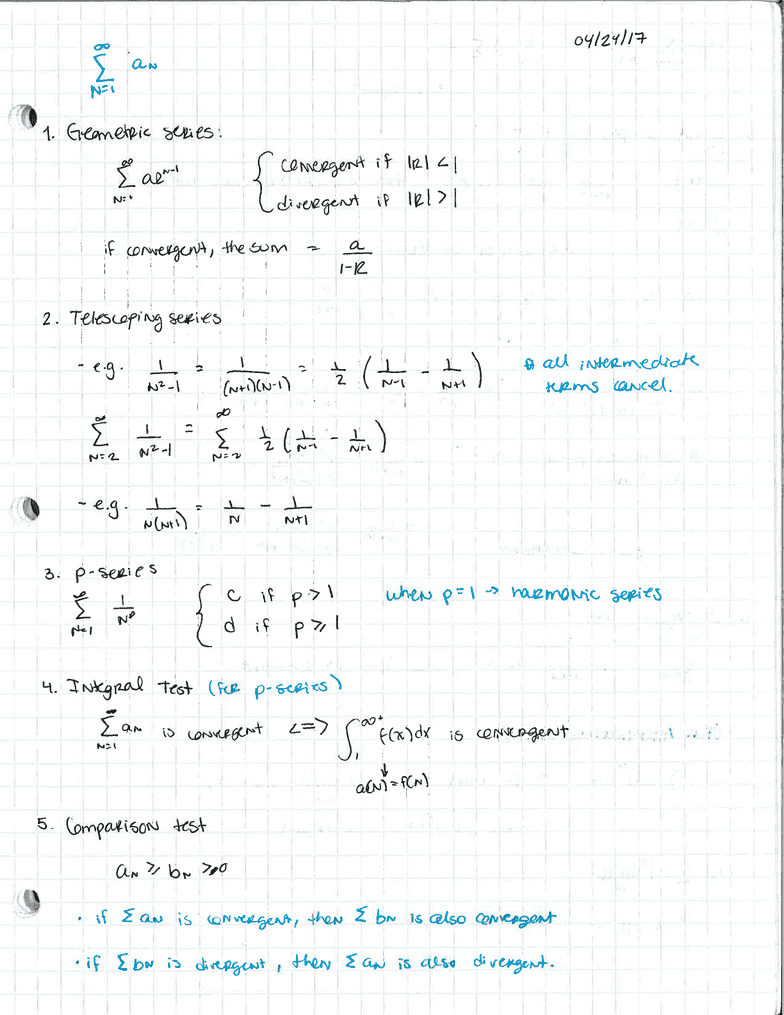 04/24/17
∞ Σ N=1 aN
1. Geometric series:
∞ Σ N=1 aR^(N-1) { convergent if |R| < 1
divergent if |R| > 1
if convergent, the sum = a/(1-R)
2. Telescoping series
- e.g. 1/(N²-1) = 1/((N+1)(N-1)) = 1/2 (1/(N-1) - 1/(N+1)) * all intermediate
terms cancel.
∞ Σ N=2 1/(N²-1) = ∞ Σ N=2 1/2 (1/(N-1) - 1/(N+1))
- e.g. 1/(N(N+1)) = 1/N - 1/(N+1)
3. p-series
∞ Σ N=1 1/N^p { c if p > 1 when p=1 → harmonic series
d if p ≥ 1
4. Integral Test (for p-series)
∞ Σ N=1 aN is convergent <=> ∫₁^(∞+) f(x)dx is convergent
↓
a(N) = f(N)
5. Comparison test
aN ≥ bN ≥ 0
· if Σ aN is convergent, then Σ bN is also convergent
· if Σ bN is divergent, then Σ aN is also divergent.